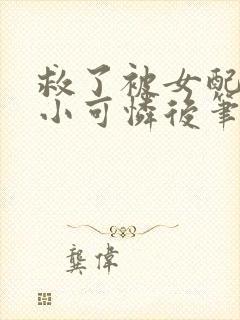 救了被女配
小可憐後筆
龔偉